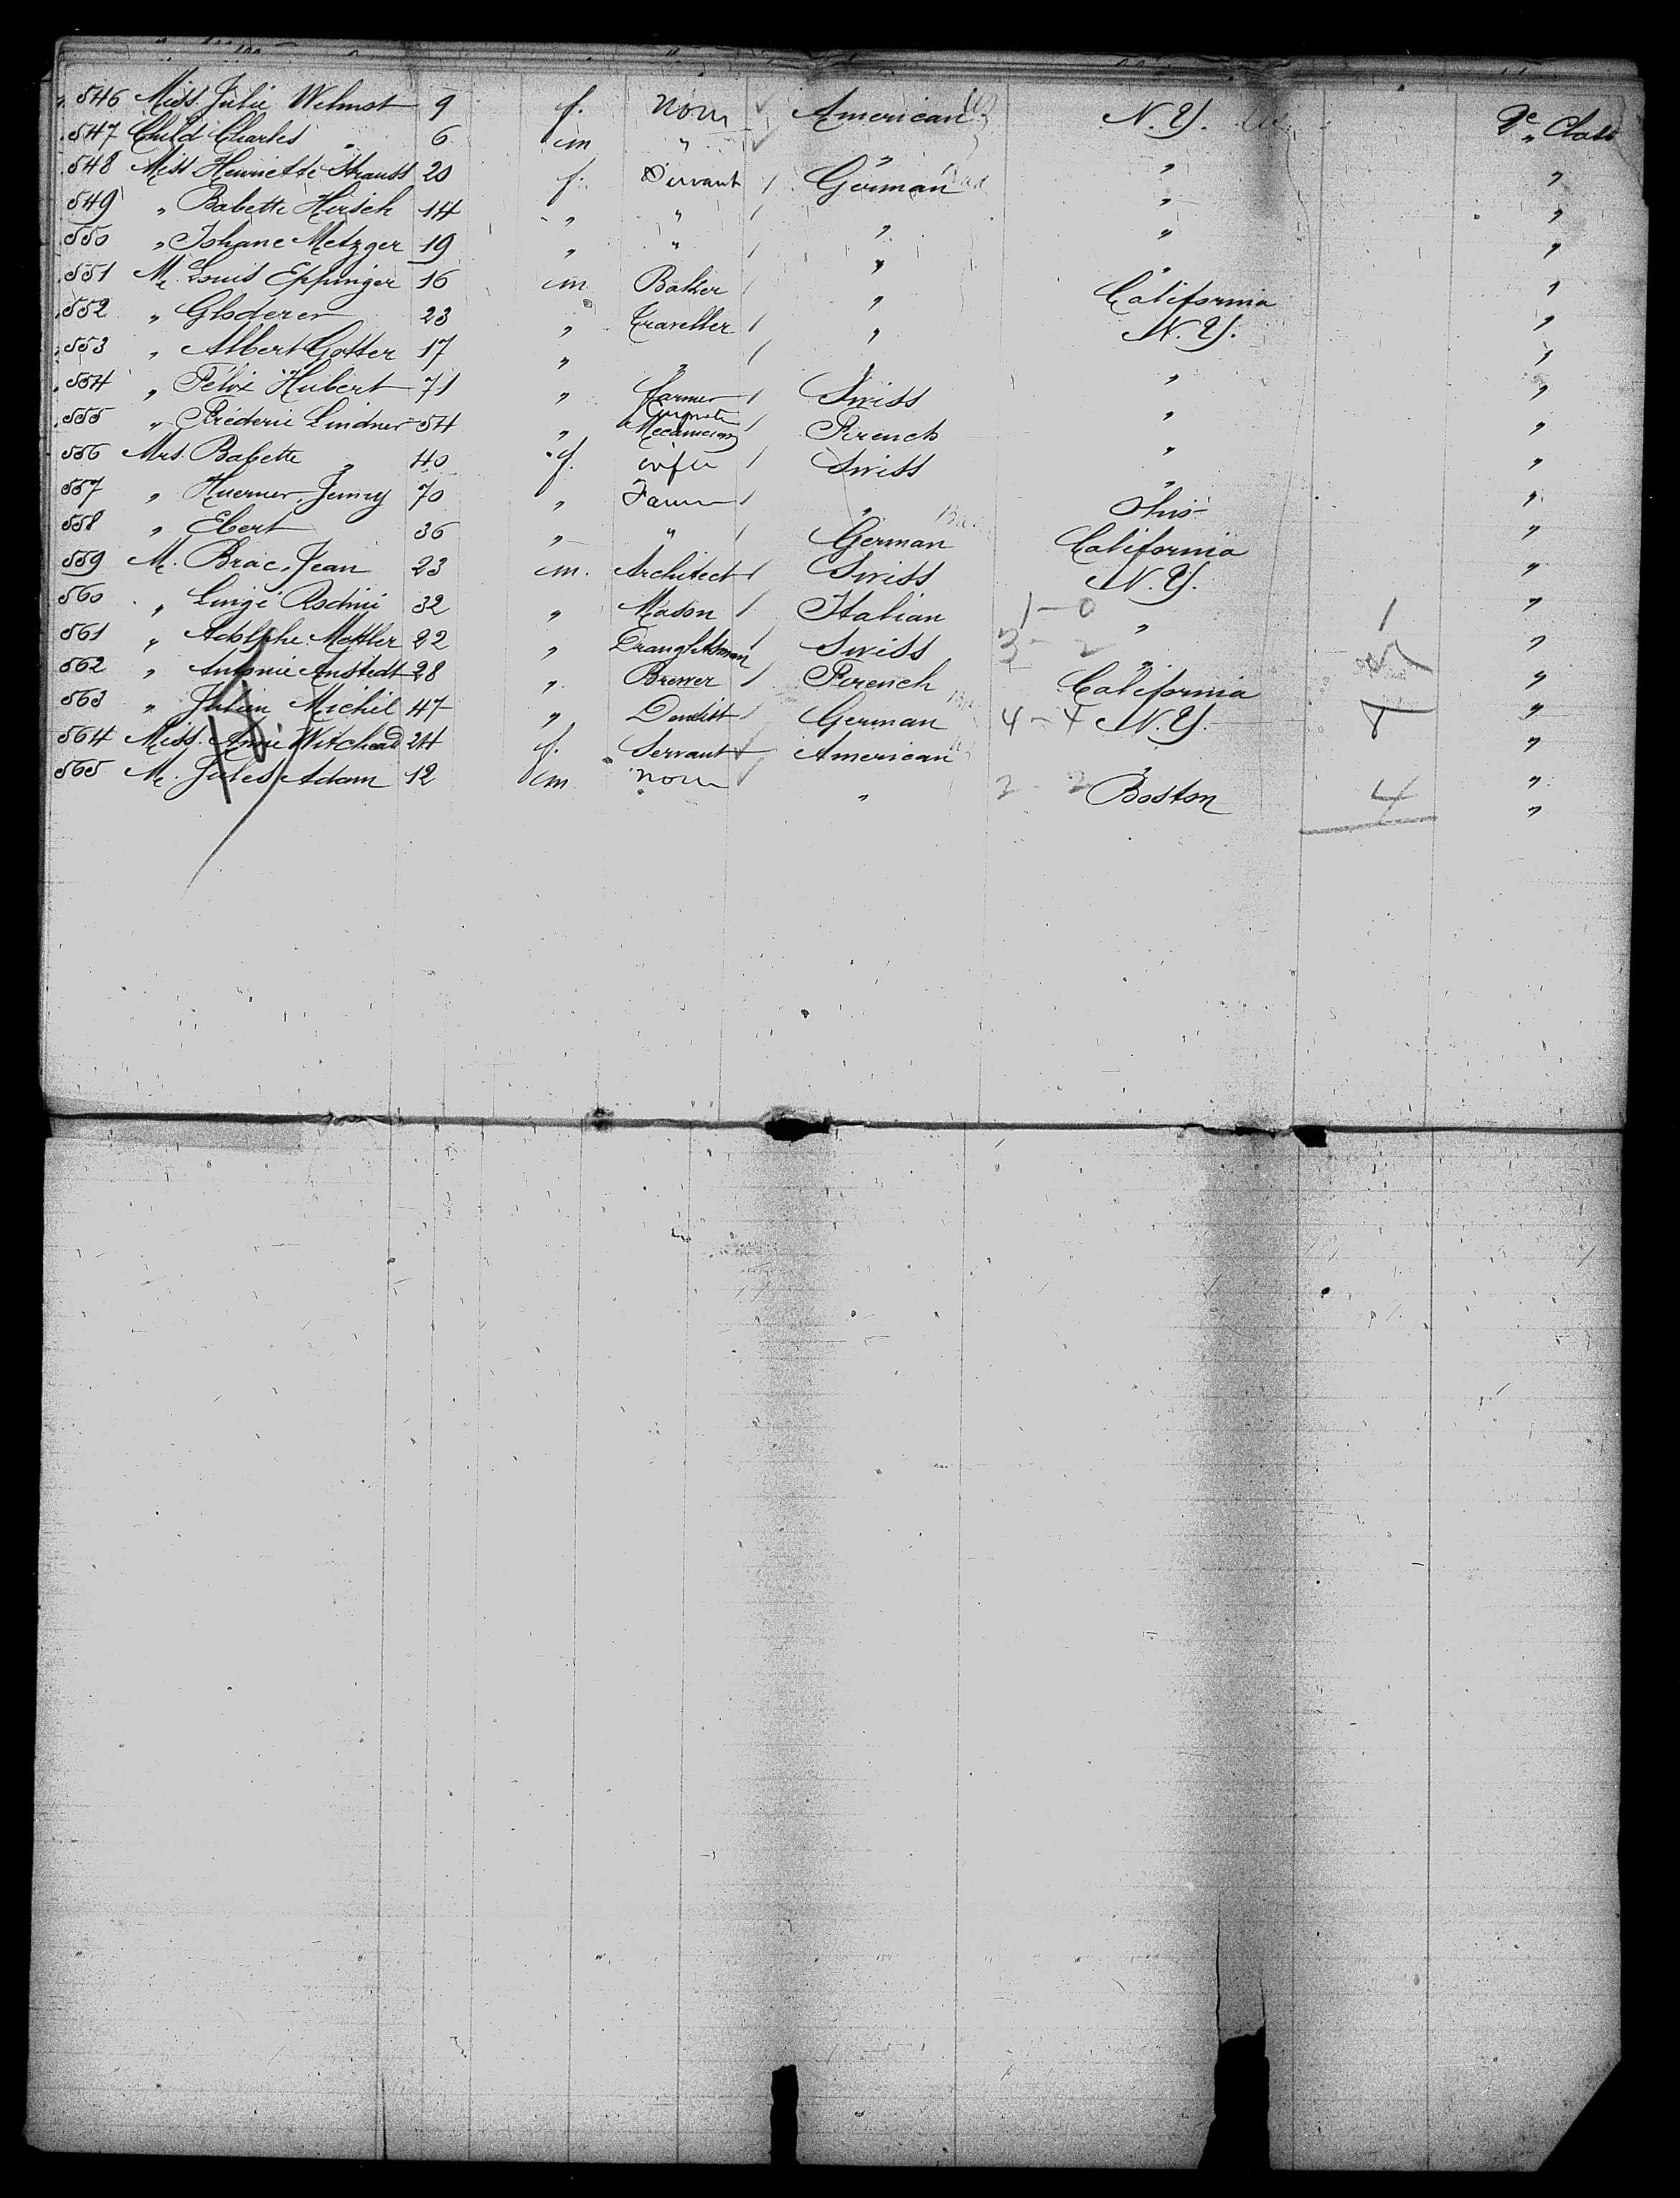 546 Miss. Julie Welmst 9 f. None American N.Y. 2e Class
547 Child Charles " 6 m " " " "
548 Miss Henriette Strauss 20 f. Servant German " "
549 " Babette Hirsch 14 " " " " "
550 " Johane Metzger 19 " " " " "
551 Mr. Louis Eppinger 16 m Baker " California "
552 " Gloderer 23 " Traveller " N.Y. "
553 " Albert Gotter 17 " " " " "
554 " Félix Hubert 71 " Farmer Swiss " "
555 " Fréderic Lindner 54 " Mecanician French " "
556 Mrs. Babette " 40 f. wife Swiss " "
557 " Huerner, Jenny 70 " " Ohio "
558 " Ebert 36 " " German California "
559 M. Brac, Jean 23 m. Architect Swiss N.Y. "
560 " Luigi 32 " Mason Italian 1-0 " 1 "
561 " Adolphe Mettler 22 " Draughtsman Swiss 3-2 " "
562 " Antonie Anstedt 28 " Brewer French California "
563 " Julien Michel 47 " Dentist German 4-4 N.Y. 8 "
564 Miss. Annie Witchead 24 f. Servant American " "
565 Mr. Jules Adam 12 m None " 2-2 Boston 4 "